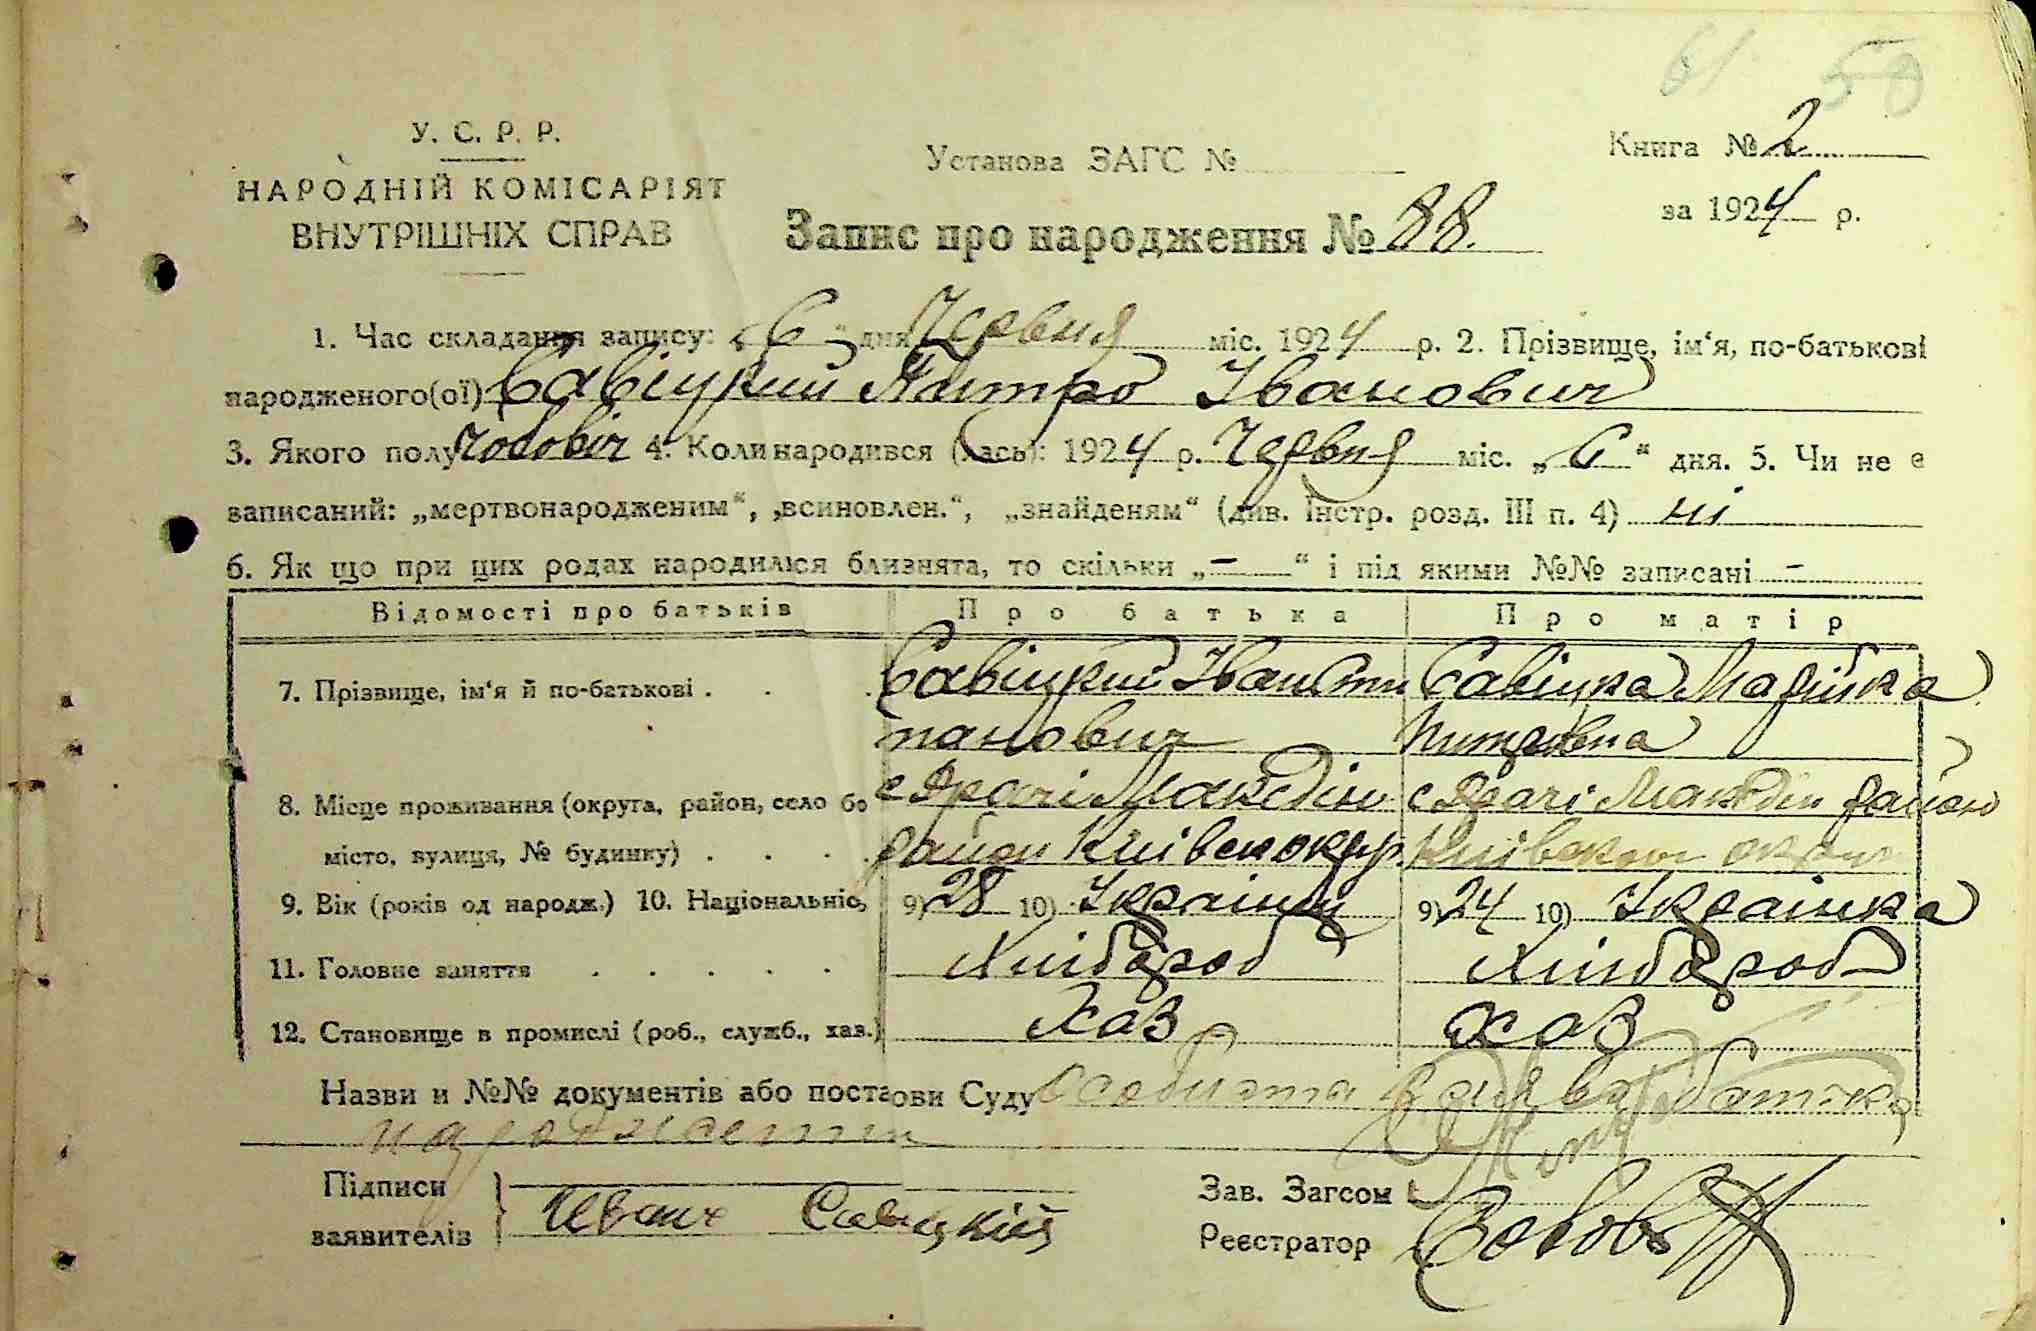 61 58
У. С. Р. Р.
НАРОДНІЙ КОМІСАРІЯТ
ВНУТРІШНІХ СПРАВ
Установа ЗАГС №
Книга № 2
за 1924 р.
Запис про народження № 88.
1. Час складання запису: „6" дня Червня міс. 1924 р. 2. Прізвище, ім‘я, по-батькові
народженого(ої) Савіцкий Дмитро Іванович
3. Якого полу Чоловіч 4. Коли народився (лась): 1924 р. Червня міс. „6“ дня. 5. Чи не є
записаний: „мертвонародженим“, „всиновлен.“, „знайденям“ (див. Інстр. розд. III п. 4) ні
6. Як що при цих родах народилися близнята, то скільки „—“ і під якими №№ записані —
Відомості про батьків Про батька Про матір
7. Прізвище, ім‘я й по-батькові . . . Савіцкий Іван Сти Савіцка Марійка
панович
8. Місце проживання (округа, район, село бо с Македін с Македін район
місто, вулиця, № будинку) . . . . район Київск окр.
9. Вік (років од народж.) 10. Національніс, 9) 28 10) Українец 9) 24 10) Українка
11. Головне заняття . . . . . Хлібороб Хлібороб
12. Становище в промислі (роб., служб., хаз.) Хаз Хаз
Назви и №№ документів або постанови Суду Особиста заява батька
Підписи
заявителів
Иван Савицкій
Зав. Загсом
Реєстратор